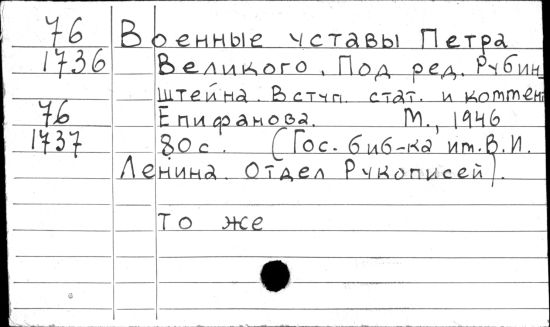 76 Военные уставы Петра
1736 Великого. Под ред. Рубин
штейна. Вступ. стат. и коммен
76 Епифанова. М., 1946
1737 80с. (Гос. биб-ка им.В.И.
Ленина. Отдел Рукописей).
то же